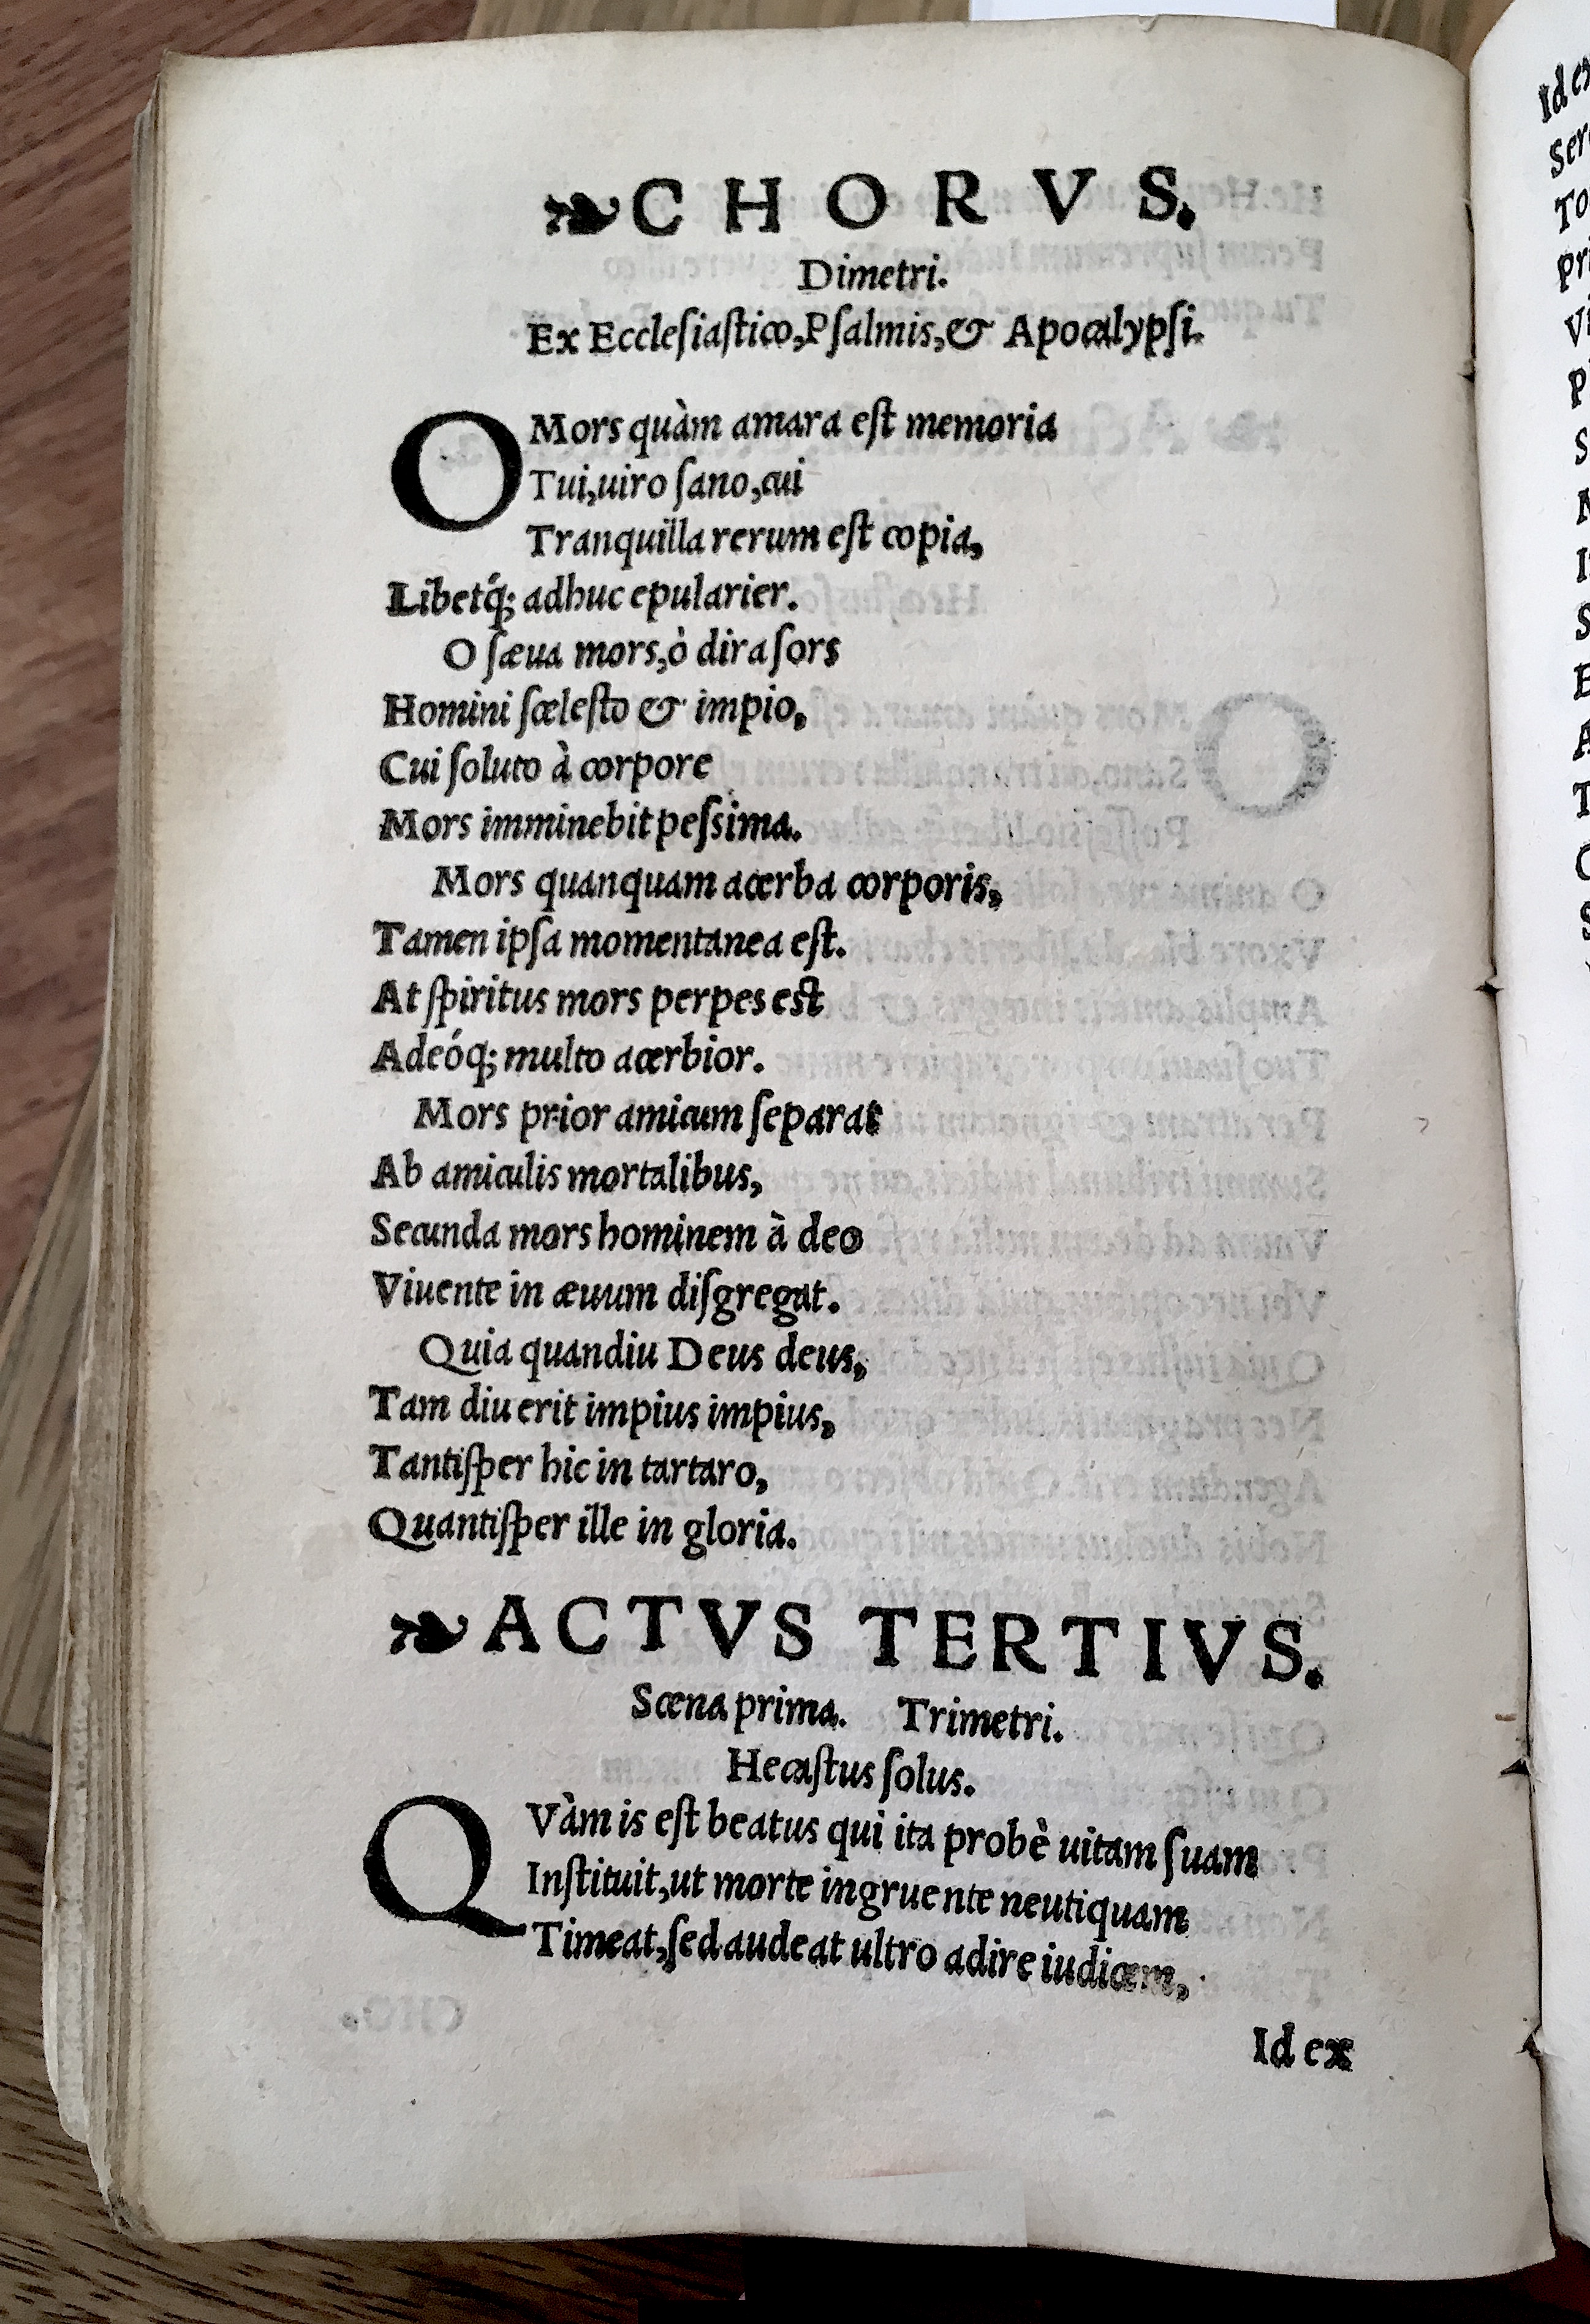 ❧CHORVS.
Dimetri.
Ex Ecclesiastico, Psalmis, & Apocalypsi.
O Mors quàm amara est memoria
Tui, uiro sano, cui
Tranquilla rerum est copia,
Libetq́; adhuc epularier.
O sæua mors, ò dira sors
Homini scelesto & impio,
Cui soluto à corpore
Mors imminebit pessima.
Mors quanquam acerba corporis,
Tamen ipsa momentanea est.
At spiritus mors perpes est
Adeóq; multo acerbior.
Mors prior amicum separat
Ab amiculis mortalibus,
Secunda mors hominem à deo
Viuente in æuum disgregat.
Quia quandiu Deus deus,
Tam diu erit impius impius,
Tantisper hic in tartaro,
Quantisper ille in gloria.
❧ACTVS TERTIVS.
Scena prima. Trimetri.
Hecastus solus.
QVàm is est beatus qui ita probè uitam suam
Instituit, ut morte ingruente neutiquam
Timeat, sed audeat ultro adire iudicem,
Id ex